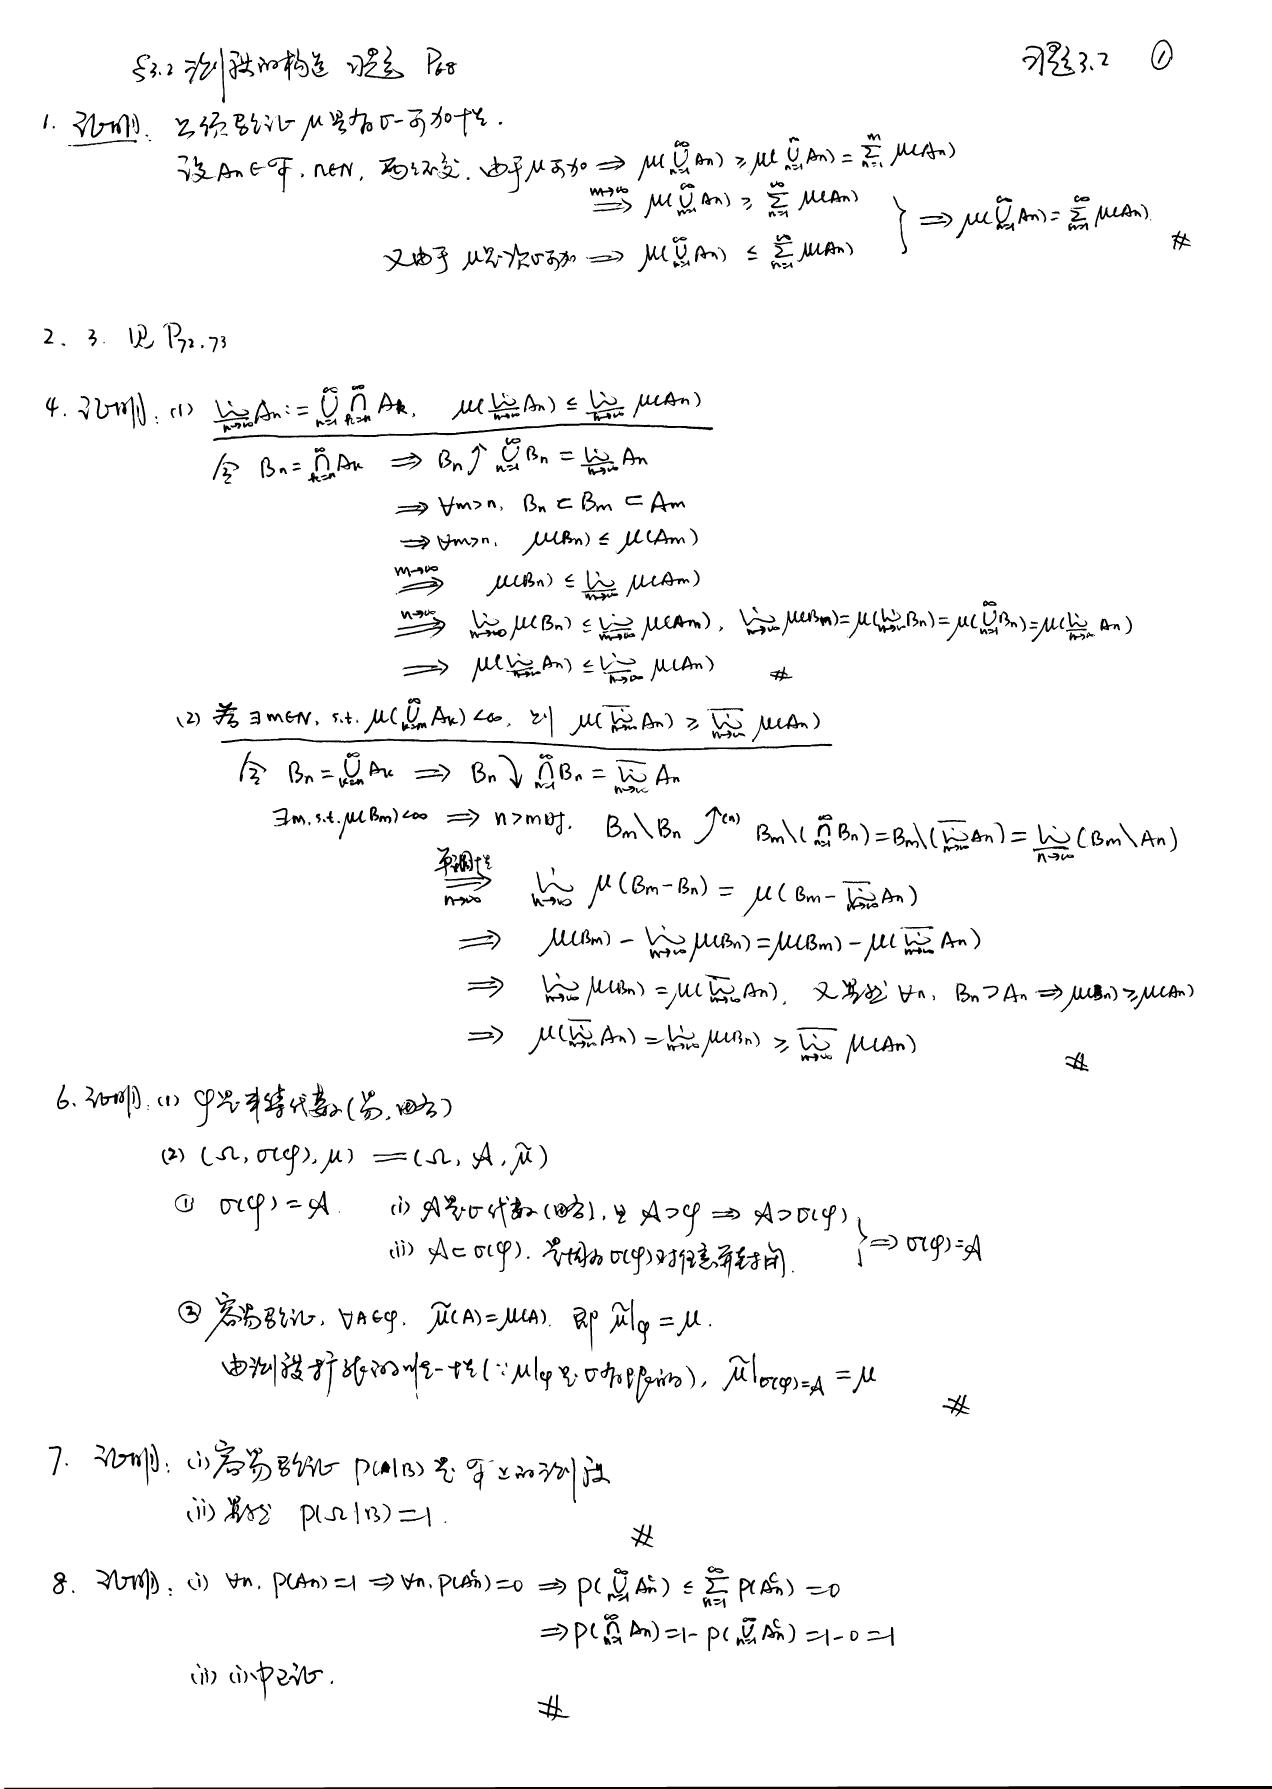 §3.2 测度的构造 习题 P68
习题3.2 ①
1. 证明: 只须验证 μ 具有 σ-可加性.
设 An∈𝓕, n∈N, 两两不交, 由于μ可加 ⇒ μ(⋃_{n=1}^∞ An) ≥ μ(⋃_{n=1}^m An) = ∑_{n=1}^m μ(An)
⇒(m→∞) μ(⋃_{n=1}^∞ An) ≥ ∑_{n=1}^∞ μ(An)
又由于 μ是次σ可加 ⇒ μ(⋃_{n=1}^∞ An) ≤ ∑_{n=1}^∞ μ(An) } ⇒ μ(⋃_{n=1}^∞ An) = ∑_{n=1}^∞ μ(An). #
2. 3. 见 P72.73
4. 证明: (1) \underline{lim}_{n→∞} An := ⋃_{n=1}^∞ ⋂_{k=n}^∞ Ak, μ(\underline{lim}_{n→∞} An) ≤ \underline{lim}_{n→∞} μ(An)
令 Bn = ⋂_{k=n}^∞ Ak ⇒ Bn↑ ⋃_{n=1}^∞ Bn = \underline{lim}_{n→∞} An
⇒ ∀m>n, Bn ⊂ Bm ⊂ Am
⇒ ∀m>n, μ(Bn) ≤ μ(Am)
⇒(m→∞) μ(Bn) ≤ \underline{lim}_{m→∞} μ(Am)
⇒(n→∞) lim_{n→∞} μ(Bn) ≤ \underline{lim}_{m→∞} μ(Am), lim_{n→∞} μ(Bn) = μ(lim_{n→∞} Bn) = μ(⋃_{n=1}^∞ Bn) = μ(\underline{lim}_{n→∞} An)
⇒ μ(\underline{lim}_{n→∞} An) ≤ \underline{lim}_{n→∞} μ(An) #
(2) 若 ∃m∈N, s.t. μ(⋃_{k=m}^∞ Ak) < ∞, 则 μ(\overline{lim}_{n→∞} An) ≥ \overline{lim}_{n→∞} μ(An)
令 Bn = ⋃_{k=n}^∞ Ak ⇒ Bn↓ ⋂_{n=1}^∞ Bn = \overline{lim}_{n→∞} An
∃m, s.t. μ(Bm)<∞ ⇒ n>m时, Bm\Bn ↑(n) Bm\(⋂_{n=1}^∞ Bn) = Bm\(\overline{lim}_{n→∞} An) = \underline{lim}_{n→∞} (Bm\An)
⇒(单调性, n→∞) lim_{n→∞} μ(Bm-Bn) = μ(Bm - \overline{lim}_{n→∞} An)
⇒ μ(Bm) - lim_{n→∞} μ(Bn) = μ(Bm) - μ(\overline{lim}_{n→∞} An)
⇒ lim_{n→∞} μ(Bn) = μ(\overline{lim}_{n→∞} An), 又显然 ∀n, Bn⊃An ⇒ μ(Bn) ≥ μ(An)
⇒ μ(\overline{lim}_{n→∞} An) = lim_{n→∞} μ(Bn) ≥ \overline{lim}_{n→∞} μ(An) #
6. 证明: (1) φ是半集代数(易, 略)
(2) (Ω, σ(φ), μ) = (Ω, 𝓐, μ̃)
① σ(φ) = 𝓐. (i) 𝓐是σ代数(略), 且 𝓐⊃φ ⇒ 𝓐⊃σ(φ)
(ii) 𝓐⊂σ(φ). 是因为 σ(φ)对任意并封闭. } ⇒ σ(φ)=𝓐
② 容易验证, ∀A∈φ, μ̃(A)=μ(A). 即 μ̃|φ = μ.
由测度扩张的唯一性(∵ μ|φ 是σ有限的), μ̃|σ(φ)=𝓐 = μ #
7. 证明: (i) 容易验证 P(A|B) 是 𝓕 上的测度
(ii) 显然 P(Ω|B)=1. #
8. 证明: (i) ∀n, P(An)=1 ⇒ ∀n, P(Anᶜ)=0 ⇒ P(⋃_{n=1}^∞ Anᶜ) ≤ ∑_{n=1}^∞ P(Anᶜ) = 0
⇒ P(⋂_{n=1}^∞ An) = 1 - P(⋃_{n=1}^∞ Anᶜ) = 1-0 = 1
(ii) (i)中已证. #